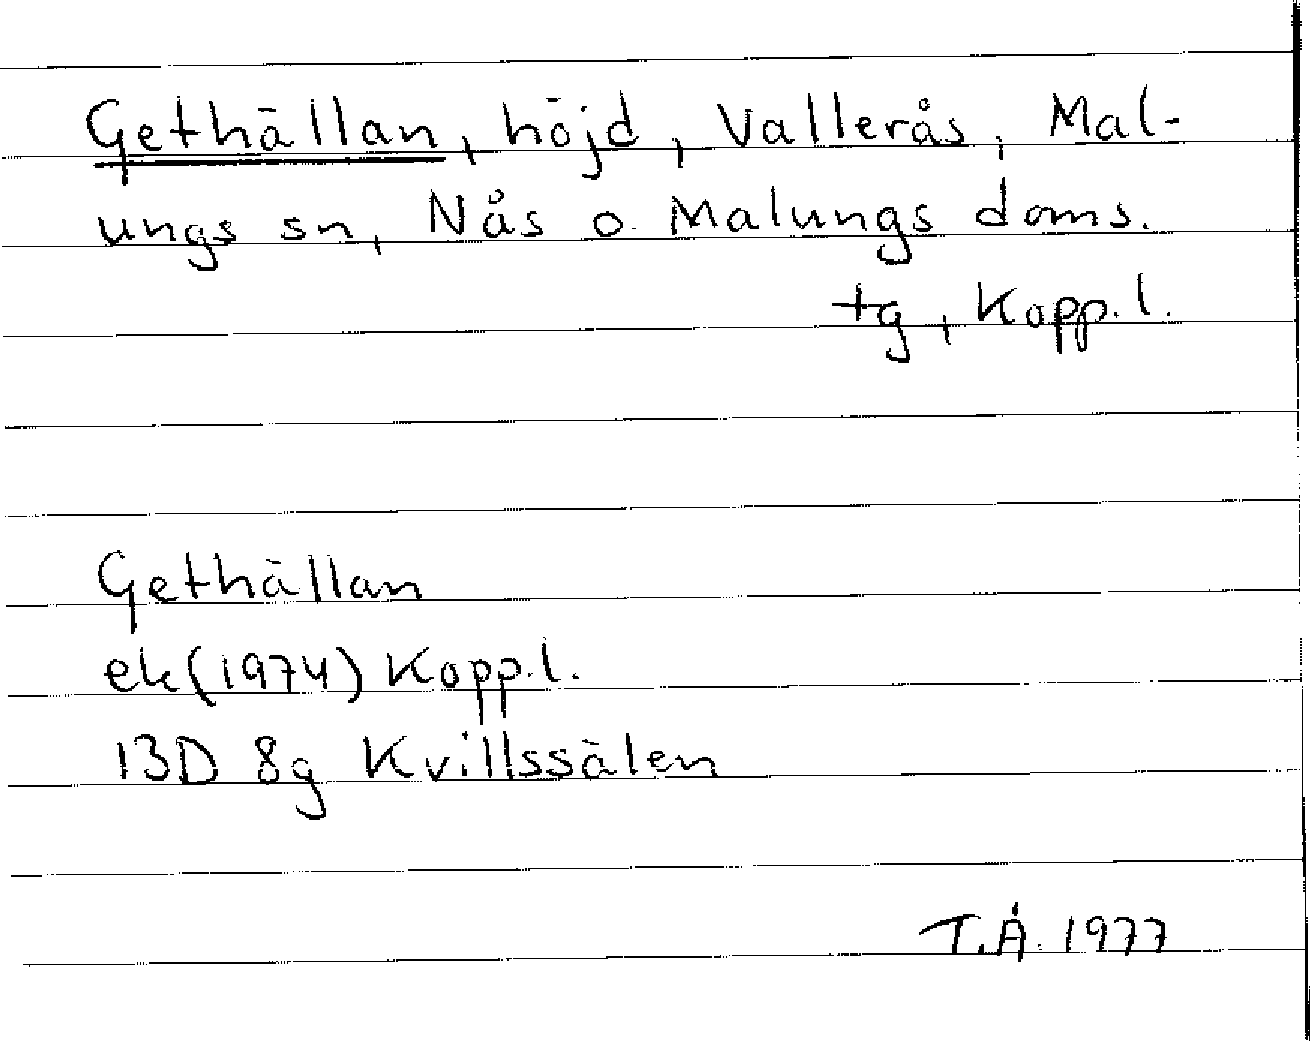 Gethällan, höjd, Vallerås, Mal-
ungs sn, Nås o. Malungs doms.
tg, Kopp.l.
Gethällan
ek (1974) Kopp.l.
13D 8g Kvillssälen
T.Å. 1977